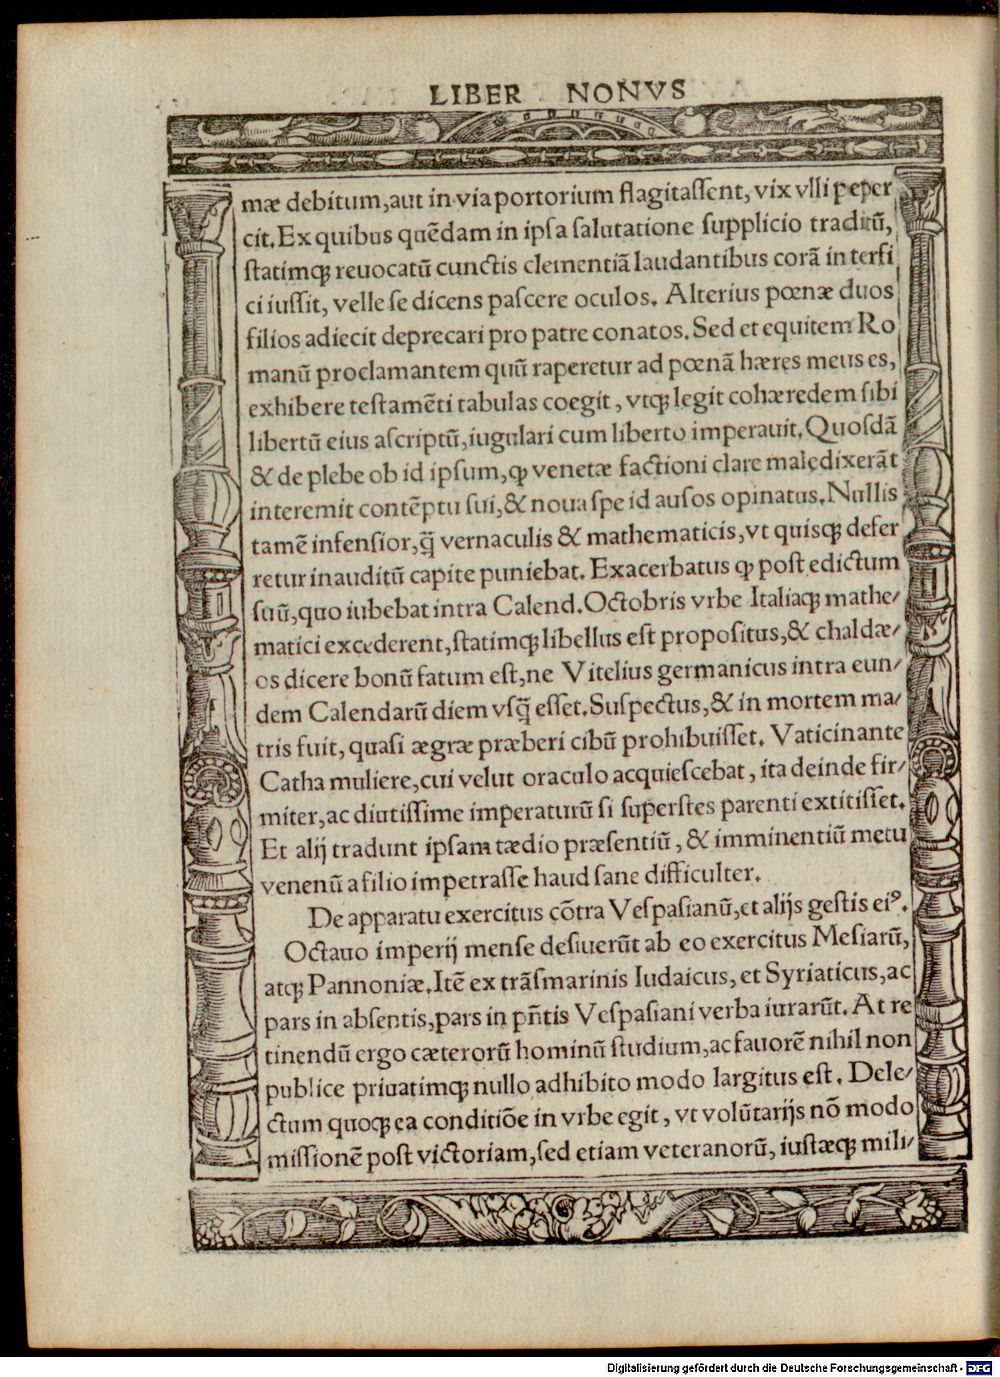 LIBER NONVS
mæ debitum,aut in via portorium flagitaſſent, vix vlli peper
cit. Ex quibus quēdam in ipſa ſalutatione ſupplicio traditū,
ſtatimqꝫ reuocatū cunctis clementiā laudantibus corā interfi
ci iuſſit, velle ſe dicens paſcere oculos. Alterius pœnæ duos
filios adiecit deprecari pro patre conatos. Sed et equitem Ro
manū proclamantem quū raperetur ad pœnā hæres meus es,
exhibere teſtamēti tabulas coegit, vtqꝫ legit cohæredem ſibi
libertū eius aſcriptū, iugulari cum liberto imperauit. Quoſdā
& de plebe ob id ipſum, ꝙ venetæ factioni clare maledixerāt
interemit contēptu ſui, & noua ſpe id auſos opinatus. Nullis
tamē infenſior, q̄ vernaculis & mathematicis, vt quisqꝫ defer
retur inauditū capite puniebat. Exacerbatus ꝙ poſt edictum
ſuū, quo iubebat intra Calend. Octobris vrbe Italiaqꝫ mathe/
matici excederent, ſtatimqꝫ libellus eſt propoſitus, & chaldæ/
os dicere bonū fatum eſt, ne Vitelius germanicus intra eun/
dem Calendarū diem vſq̄ eſſet. Suſpectus, & in mortem ma/
tris fuit, quaſi ægræ præberi cibū prohibuiſſet. Vaticinante
Catha muliere, cui velut oraculo acquieſcebat, ita deinde fir/
miter, ac diutiſſime imperaturū ſi ſuperſtes parenti extitiſſet.
Et alij tradunt ipſam tædio præſentiū, & imminentiū metu
venenū a filio impetraſſe haud ſane difficulter.
De apparatu exercitus cōtra Veſpaſianū, et alijs geſtis eiꝰ.
Octauo imperij menſe deſiuerūt ab eo exercitus Meſiarū,
atqꝫ Pannoniæ. Itē ex trāſmarinis Iudaicus, et Syriaticus, ac
pars in abſentis, pars in pñtis Veſpaſiani verba iurarūt. At re
tinendū ergo cæterorū hominū ſtudium, ac fauorē nihil non
publice priuatimqꝫ nullo adhibito modo largitus eſt. Dele/
ctum quoqꝫ ea conditiōe in vrbe egit, vt volūtarijs nō modo
miſſionē poſt victoriam, ſed etiam veteranorū, iuſtæqꝫ mili/
Digitalisierung gefördert durch die Deutsche Forschungsgemeinschaft - DFG